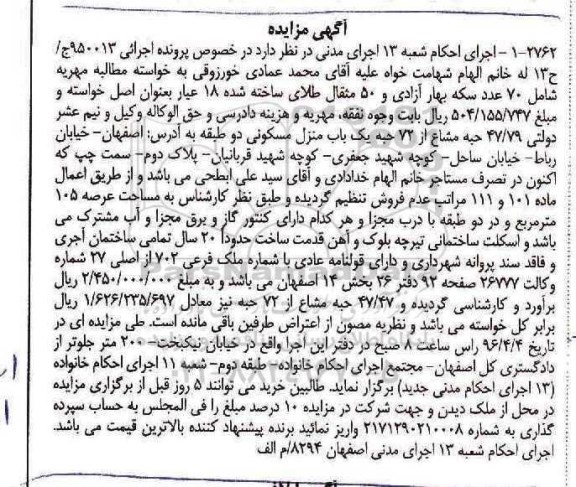 آگهی مزایده
۱-۲۷۶۲ - اجرای احکام شعبه ۱۳ اجرای مدنی در نظر دارد در خصوص پرونده اجرائی ۹۵۰۰۱۳ج/
ح۱۳ له خانم الهام شهامت خواه علیه آقای محمد عمادی خورزوقی به خواسته مطالبه مهریه
شامل ۷۰ عدد سکه بهار آزادی و ۵۰ مثقال طلای ساخته شده ۱۸ عیار بعنوان اصل خواسته و
مبلغ ۵۰۴/۱۵۵/۷۴۷ ریال بابت وجوه نفقه، مهریه و هزینه دادرسی و حق الوکاله وکیل و نیم عشر
دولتی ۴۷/۷۹ حبه مشاع از ۷۲ حبه یک باب منزل مسکونی دو طبقه به آدرس: اصفهان- خیابان
رباط- خیابان ساحل- کوچه شهید جعفری- کوچه شهید قربانیان- پلاک دوم- سمت چپ که
اکنون در تصرف مستاجر خانم الهام خدادادی و آقای سید علی ابطحی می باشد و از طریق اعمال
ماده ۱۰۱ و ۱۱۱ مراتب عدم فروش تنظیم گردیده و طبق نظر کارشناس به مساحت عرصه ۱۰۵
مترمربع و در دو طبقه با درب مجزا و هر کدام دارای کنتور گاز و برق مجزا و آب مشترک می
باشد و اسکلت ساختمانی تیرچه بلوک و آهن قدمت ساخت حدوداً ۲۰ سال تمامی ساختمان آجری
و فاقد سند پروانه شهرداری و دارای قولنامه عادی با شماره ملک فرعی ۷۰۲ از اصلی ۲۷ شماره
وکالت ۲۶۷۷۷ صفحه ۹۳ دفتر ۳۶ بخش ۱۴ اصفهان می باشد و به مبلغ ۲/۴۵۰/۰۰۰/۰۰۰ ریال
برآورد و کارشناسی گردیده و ۴۷/۴۷ حبه مشاع از ۷۲ حبه نیز معادل ۱/۶۲۶/۲۳۵/۶۹۷ ریال
برابر کل خواسته می باشد و نظریه مصون از اعتراض طرفین باقی مانده است. طی مزایده ای در
تاریخ ۹۶/۴/۴ راس ساعت ۸ صبح در دفتر این اجرا واقع در خیابان نیکبخت- ۲۰۰ متر جلوتر از
دادگستری کل اصفهان- مجتمع اجرای احکام خانواده- طبقه دوم- شعبه ۱۱ اجرای احکام خانواده
(۱۳ اجرای احکام مدنی جدید) برگزار نماید. طالبین خرید می توانند ۵ روز قبل از برگزاری مزایده
در محل از ملک دیدن و جهت شرکت در مزایده ۱۰ درصد مبلغ را فی المجلس به حساب سپرده
گذاری به شماره ۲۱۷۱۲۹۰۲۱۰۰۰۸ واریز نمائید برنده پیشنهاد کننده بالاترین قیمت می باشد.
اجرای احکام شعبه ۱۳ اجرای مدنی اصفهان ۸۲۹۴/م الف